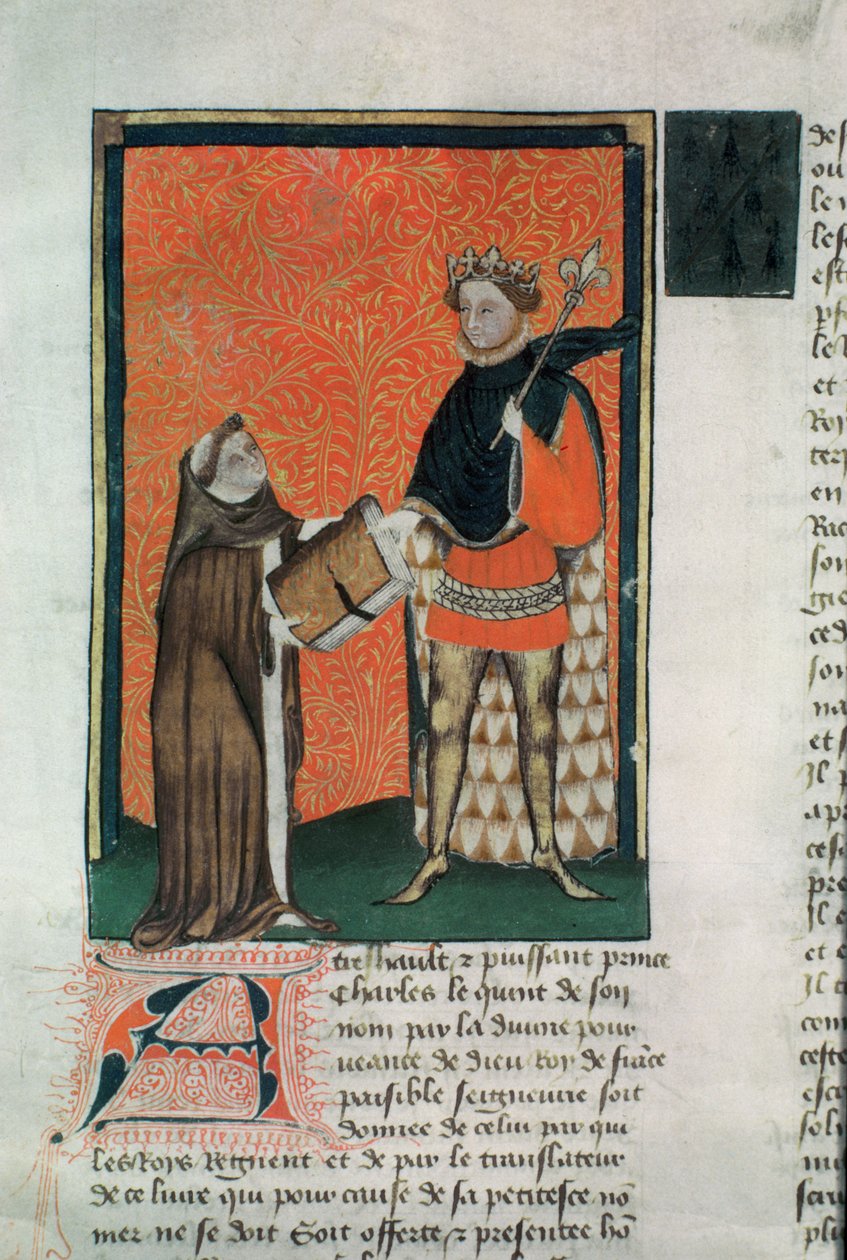 A tres hault ⁊ puissant prince
Charles le quint de son
nom par la diuine pour
ueance de dieu Roy de frāce
paisible seigneurie soit
donnee de celui par qui
les Roys Regnent et de par le translateur
de ce liure qui pour cause de sa petitesce nō
mer ne se doit Soit offerte ⁊ presentee hō
des
ou
le
est
le
et
Roy
en
son
gie
ced
son
na
et
Il
apr
ces
pre
Il
et
Il
com
ceste
escr